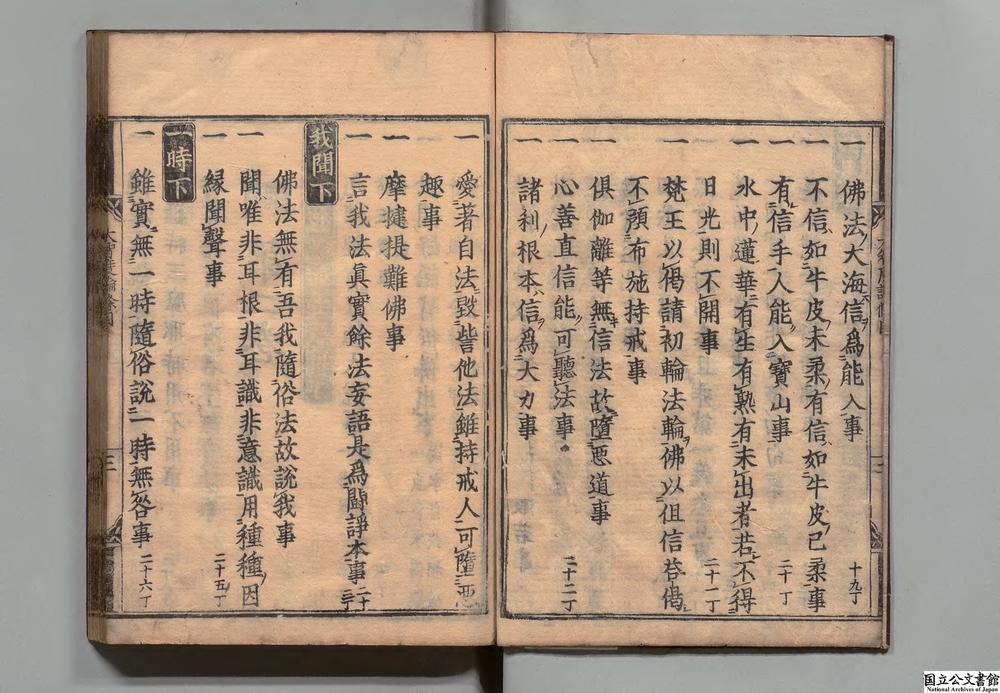 一 佛法大海信爲能入事 十九丁
一 不信如牛皮未柔有信如牛皮已柔事
一 有信手入能入寶山事 二十丁
一 水中蓮華有生有熟有未出者若不得
日光則不開事 二十一丁
一 梵王以偈請初輪法輪佛以但信荅偈
不須布施持戒事
一 俱伽離等無信法故墮惡道事
一 心善直信能可聽法事 二十二丁
一 諸利根本信爲大力事
一 愛著自法毀呰他法雖持戒人可墮惡
趣事
一 摩揵提難佛事
一 言我法眞實餘法妄語是爲鬪諍本事
我聞下
佛法無有吾我隨俗法故說我事
一 聞唯非耳根非耳識非意識用種種因
緣聞聲事 二十五丁
一時下
一 雖實無一時隨俗說一時無咎事 二十六丁
三
三
国立公文書館
National Archives of Japan